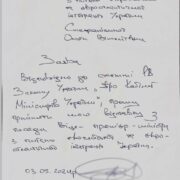 з питань європейської
та євроатлантичної
інтеграції України
Стефанішиної
Ольги Віталіївни
Заява
Відповідно до статті
Закону України "Про Кабінет
Міністрів України" прошу
прийняти мою відставку з
посади Віце-прем'єр-міністра
з питань європейської та євро-
атлантичної інтеграції України.
03.09.2024